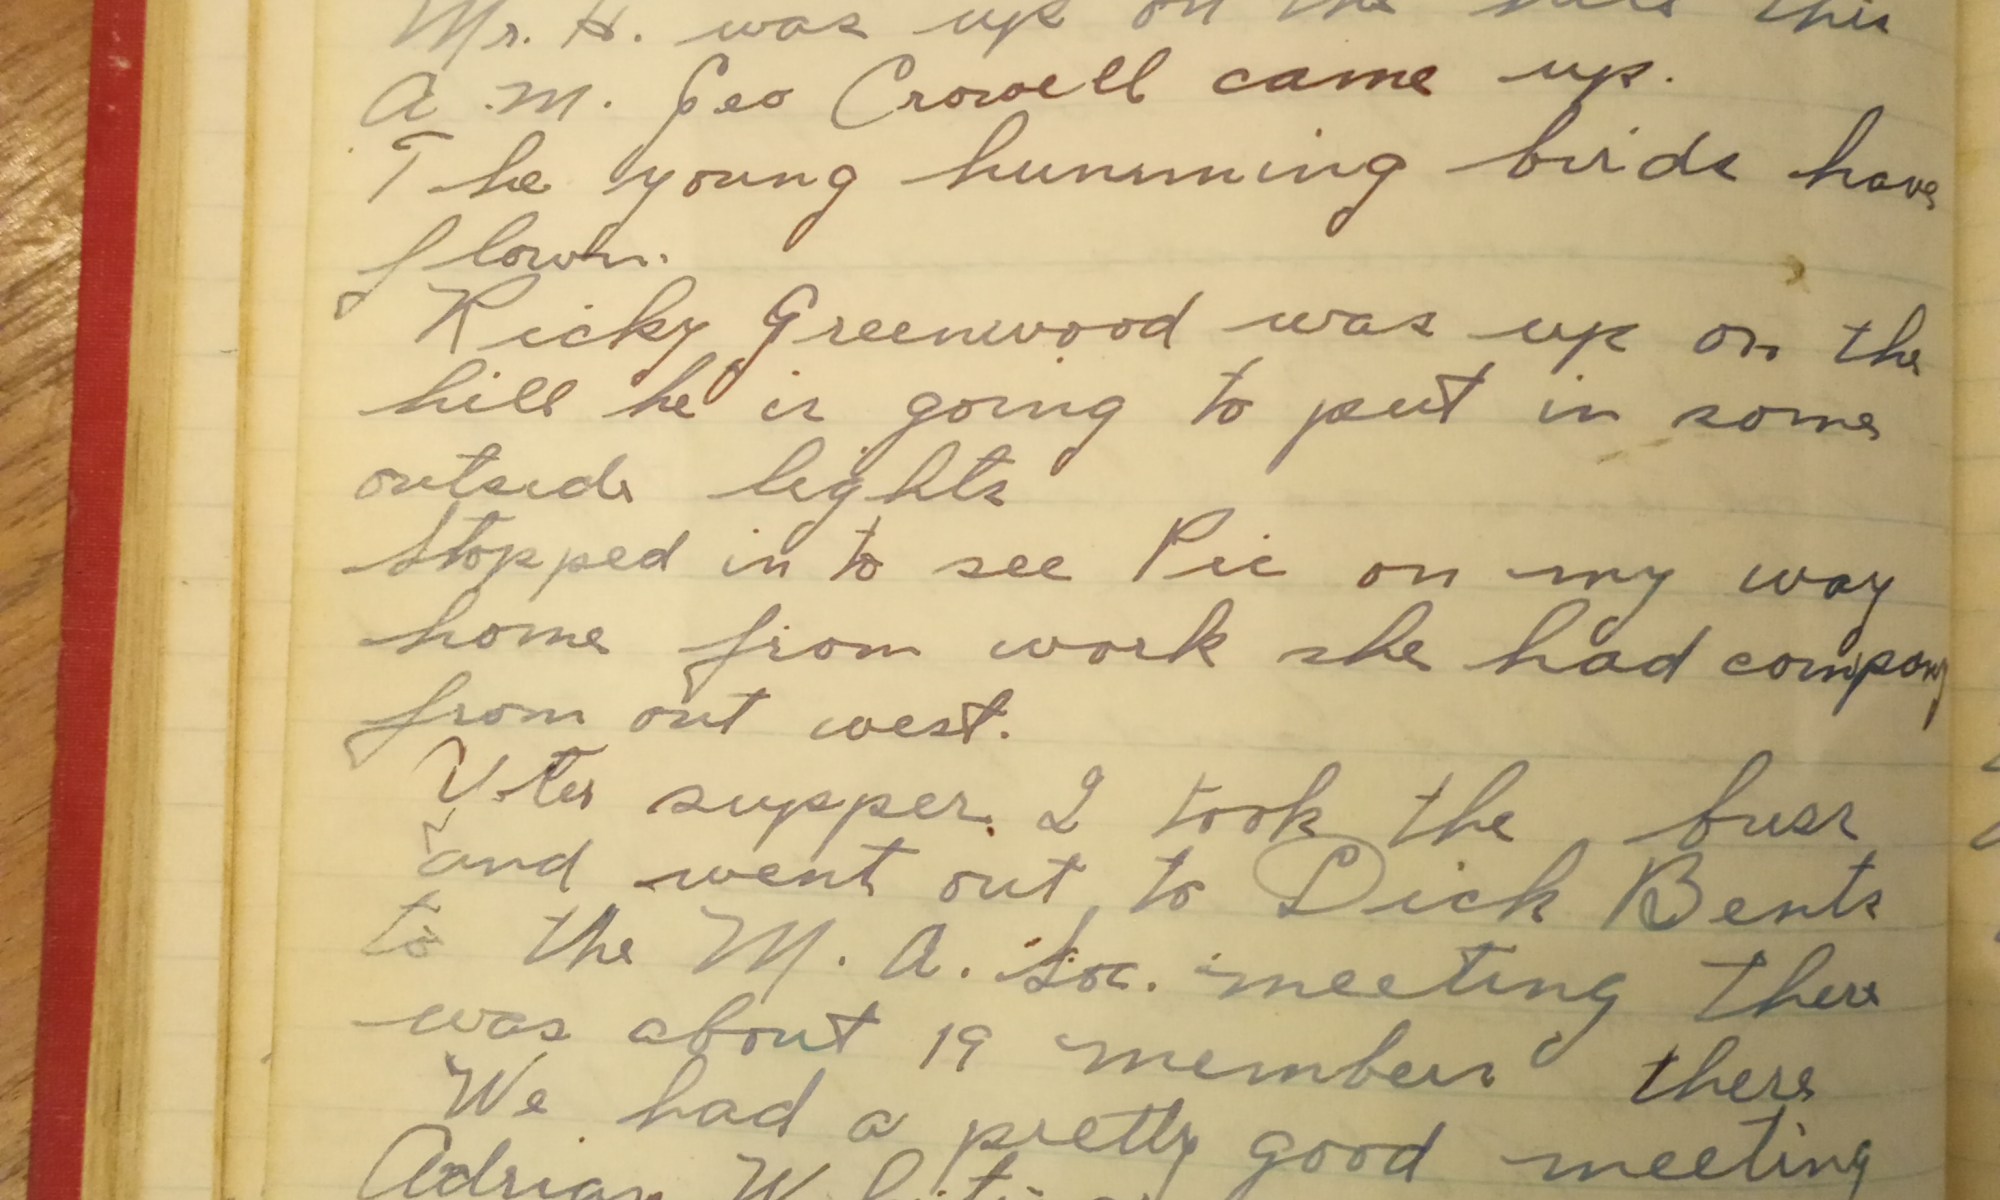 Mr. H. was up on the hill this
A.M. Geo Crowell came up.
The young humming birds have
flown.
Ricky Greenwood was up on the
hill he is going to put in some
outside lights
Stopped in to see Pic on my way
home from work she had company
from out west.
supper I took the buss
and went out to Dick Bents
to the M. A. Soc. meeting there
was about 19 members there
We had a pretty good meeting
Adrian